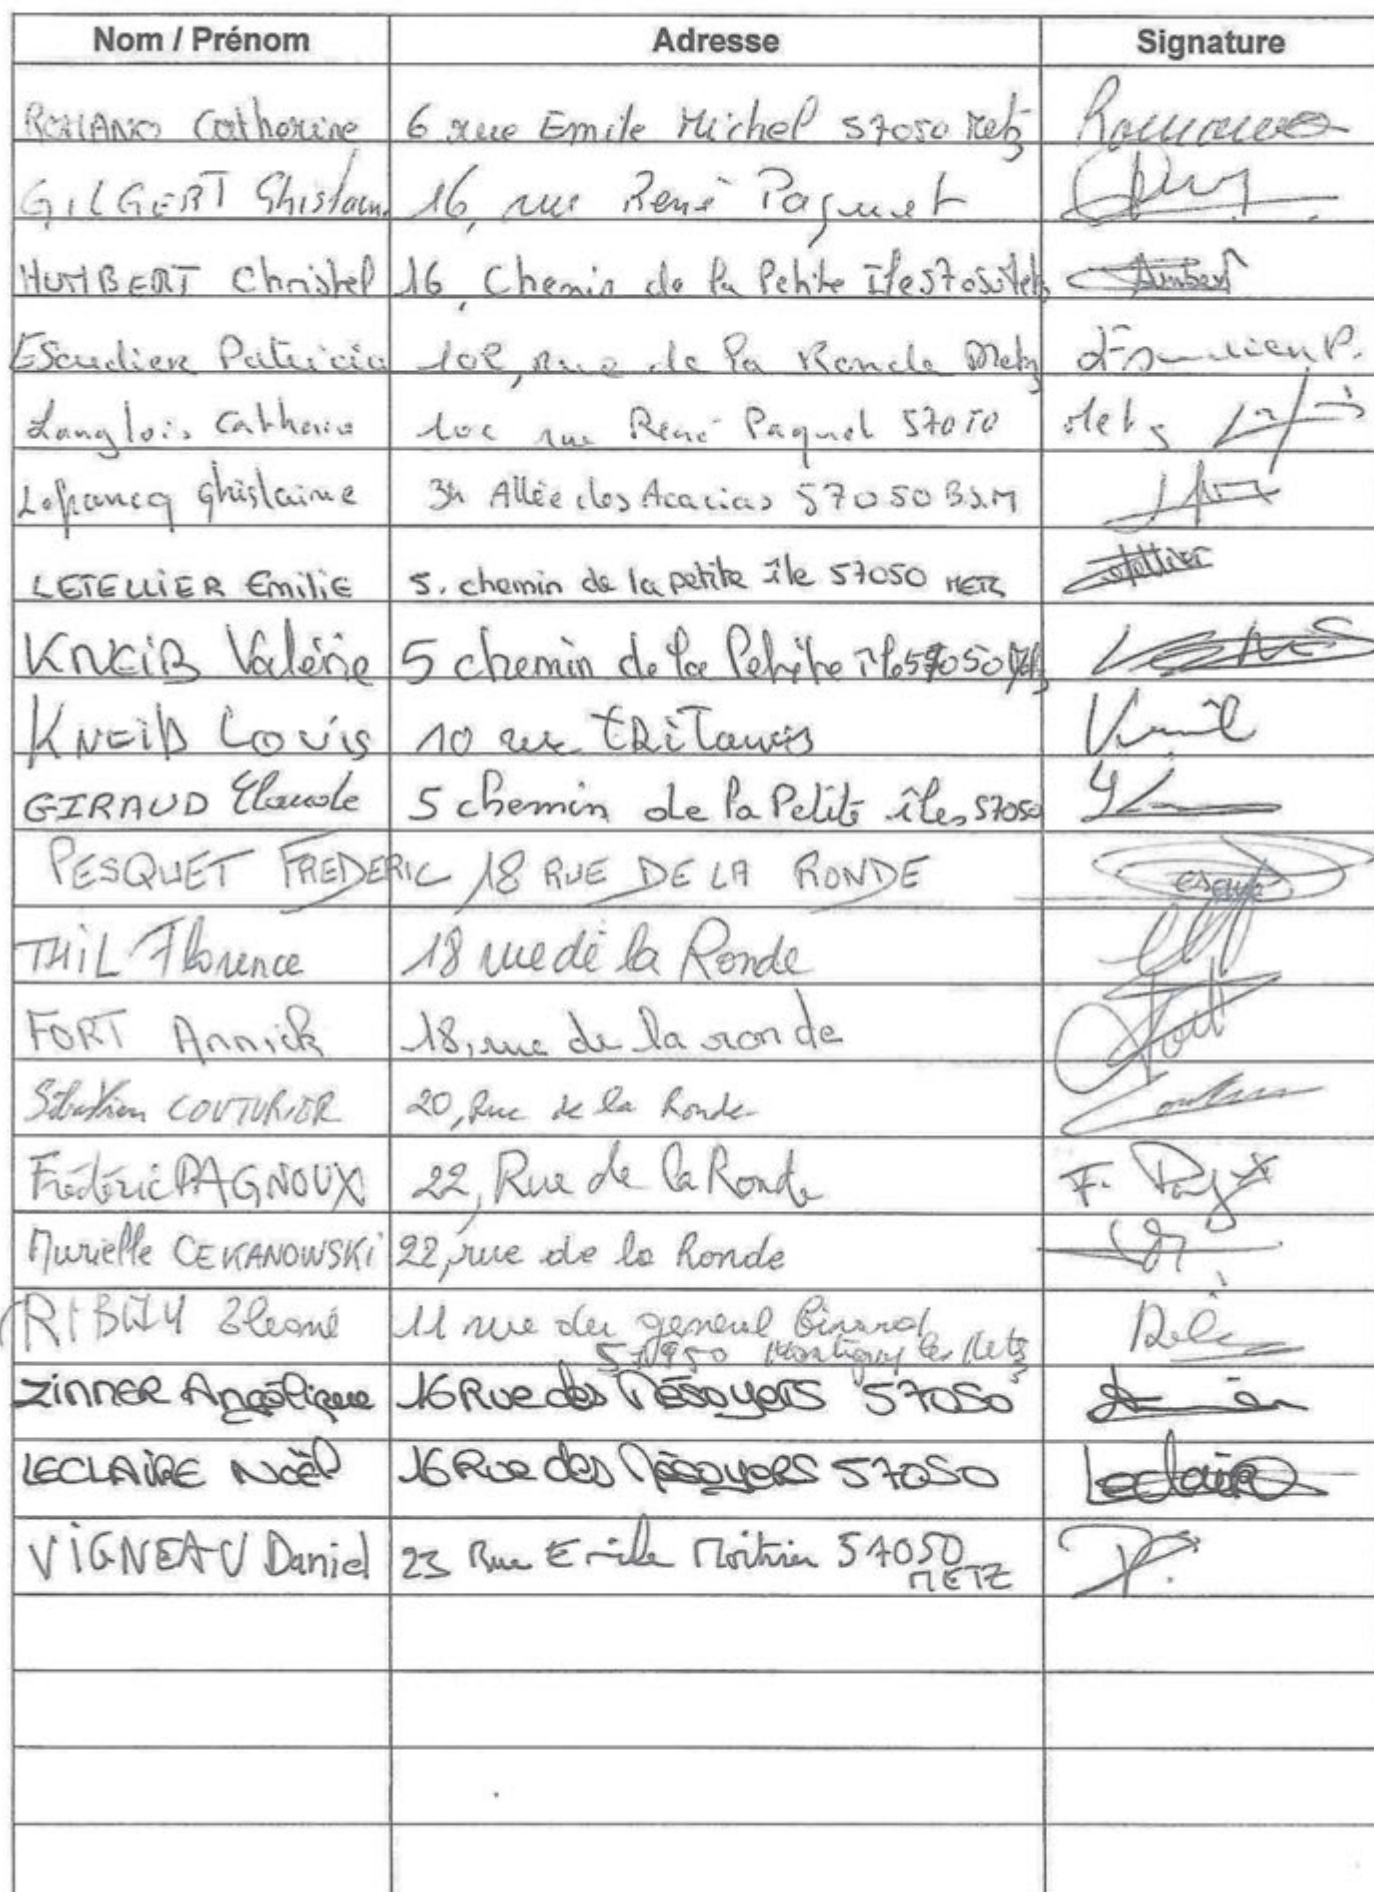 Nom / Prénom Adresse Signature
ROMANO Catherine 6 rue Emile Michel 57050 Metz Romano
GILGERT Ghislain 16, rue René Paquet
HUMBERT Christel 16, Chemin de la Petite Île 57050 Metz Humbert
Escudier Patricia 102, rue de la Ronde Metz
Langlois Catherine rue René Paquet 57050 Metz
Lefrancq Ghislaine Allée des Acacias 57050 B.S.M
LETELLIER Emilie 5. chemin de la petite île 57050 METZ Letellier
KNEIB Valérie 5 chemin de la Petite île 57050 Metz
KNEIB Louis 10 rue
GIRAUD Claude 5 chemin de la Petite îles 57050
PESQUET FREDERIC 18 RUE DE LA RONDE
THIL Florence 18 rue de la Ronde
FORT Annick 18, rue de la ronde Fort
Sébastien COUTURIER 20, Rue de la Ronde
Frédéric PAGNOUX 22, Rue de la Ronde F.
Murielle CEKANOWSKI 22, rue de la Ronde
11 rue du general
57950 Montigny les Metz
ZINNER Angélique 16 Rue des 57050
LECLAIRE Noël 16 Rue des 57050 Leclaire
VIGNEAU Daniel 23 Rue Emile 57050
METZ